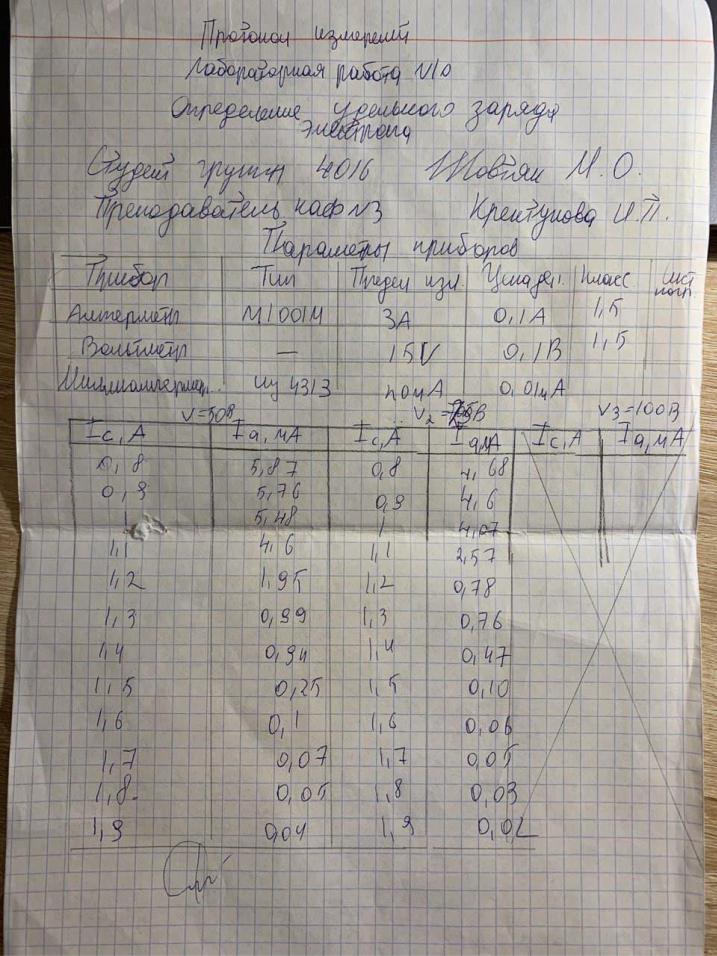 Протокол измерений
Лабораторная работа №10
Определение удельного заряда
электрона
Студент группы 4016 Жовтяк М. О.
Преподаватель каф №3 И.П.
Параметры приборов
Прибор Тип Предел изм. Цена дел. Класс сист погр.
Амперметр М1001М 3А 0,1А 1,5
Вольтметр — 15V 0,1В 1,5
Миллиамперметр 4313 0,01мА
V=50В V₂= В V3=100В
Ic,А Ia,мА Ic,А Ia,мА Ic,А Ia,мА
0,8 5,87 0,8 4,68
0,9 5,76 0,9 4,6
1 5,48 1 4,07
1,1 4,6 1,1 2,57
1,2 1,95 1,2 0,78
1,3 0,99 1,3 0,76
1,4 0,94 1,4 0,47
1,5 0,25 1,5 0,10
1,6 0,1 1,6 0,06
1,7 0,07 1,7 0,05
1,8 0,05 1,8 0,03
1,9 0,04 1,9 0,02